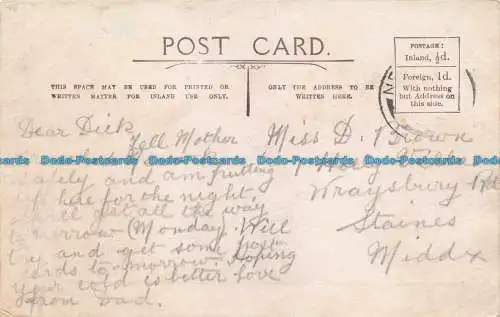 POST CARD.
POSTAGE:
Inland, ½d.
Foreign, 1d.
With nothing
but Address on
this side.
THIS SPACE MAY BE USED FOR PRINTED OR
WRITTEN MATTER FOR INLAND USE ONLY.
ONLY THE ADDRESS TO BE
WRITTEN HERE.
Dear Dick
Tell Mother
safely and am putting
up here for the night.
shall get all the way
to morrow (Monday) Will
try and get some
cards to-morrow. Hoping
your cold is better love
from Dad.
Miss D. Brown
Wraysbury Rd
Staines
Middx
Dodo-Postcards Dodo-Postcards Dodo-Postcards Dodo-Postcards Dodo-Postcards